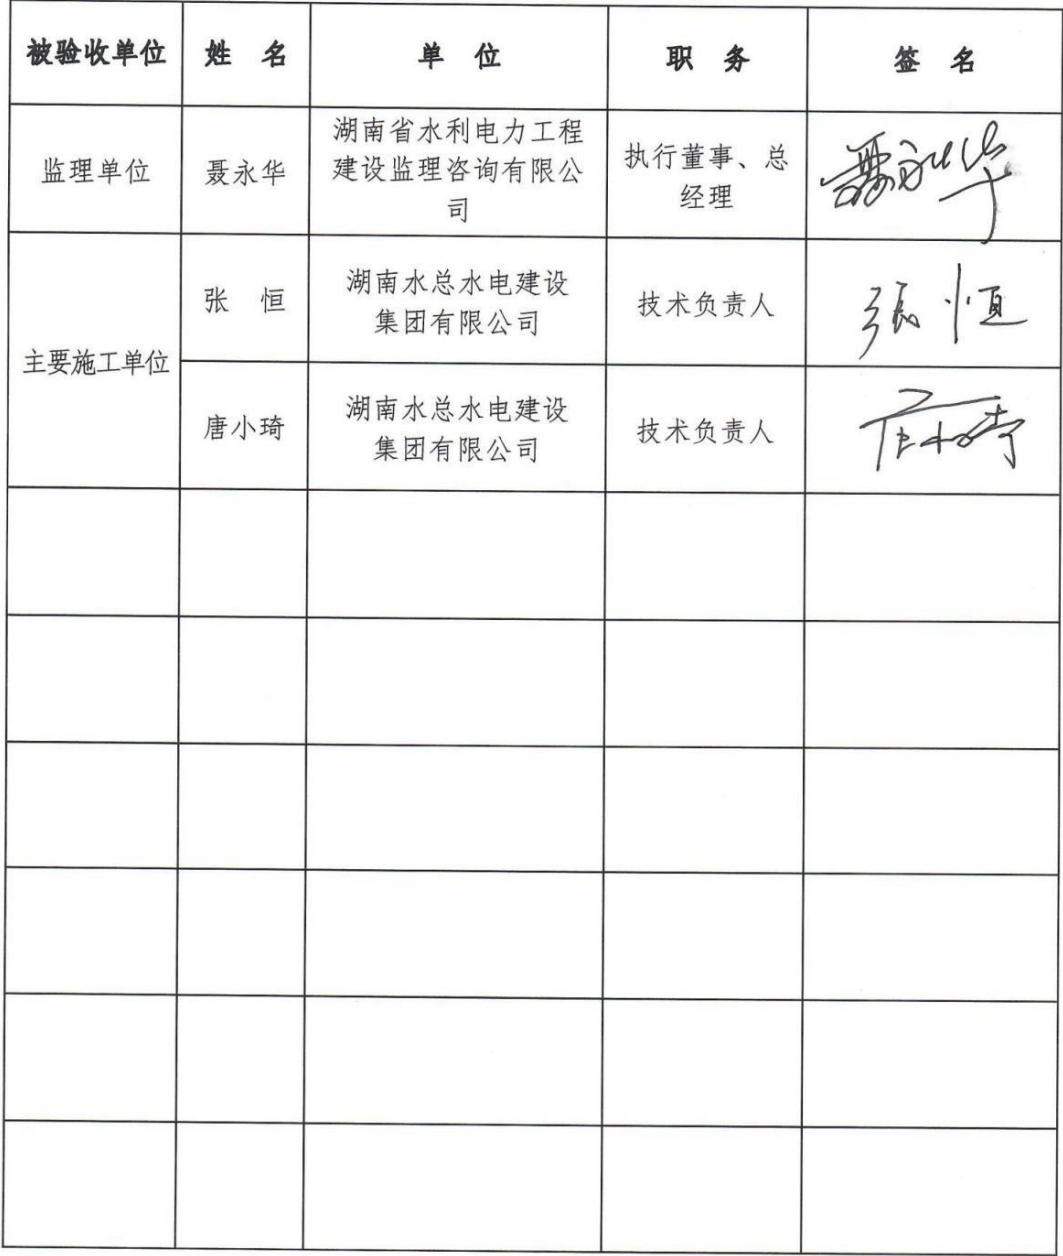 被验收单位 姓 名 单 位 职 务 签 名
监理单位 聂永华 湖南省水利电力工程
建设监理咨询有限公
司 执行董事、总
经理 聂永华
主要施工单位 张 恒 湖南水总水电建设
集团有限公司 技术负责人 張恒
唐小琦 湖南水总水电建设
集团有限公司 技术负责人 唐小琦